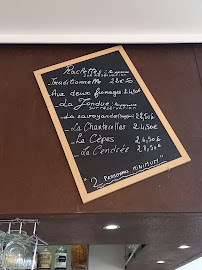 Raclettes: 
Traditionnelle 22€50
Aux deux fromages 24,50€
- La Fondue:
sur réservation
- La savoyarde 22,50€
- La Chanteulles 24,50€
- La Cèpes 24,50€
- La Cendrée 28,50€
"2 personnes minimum"